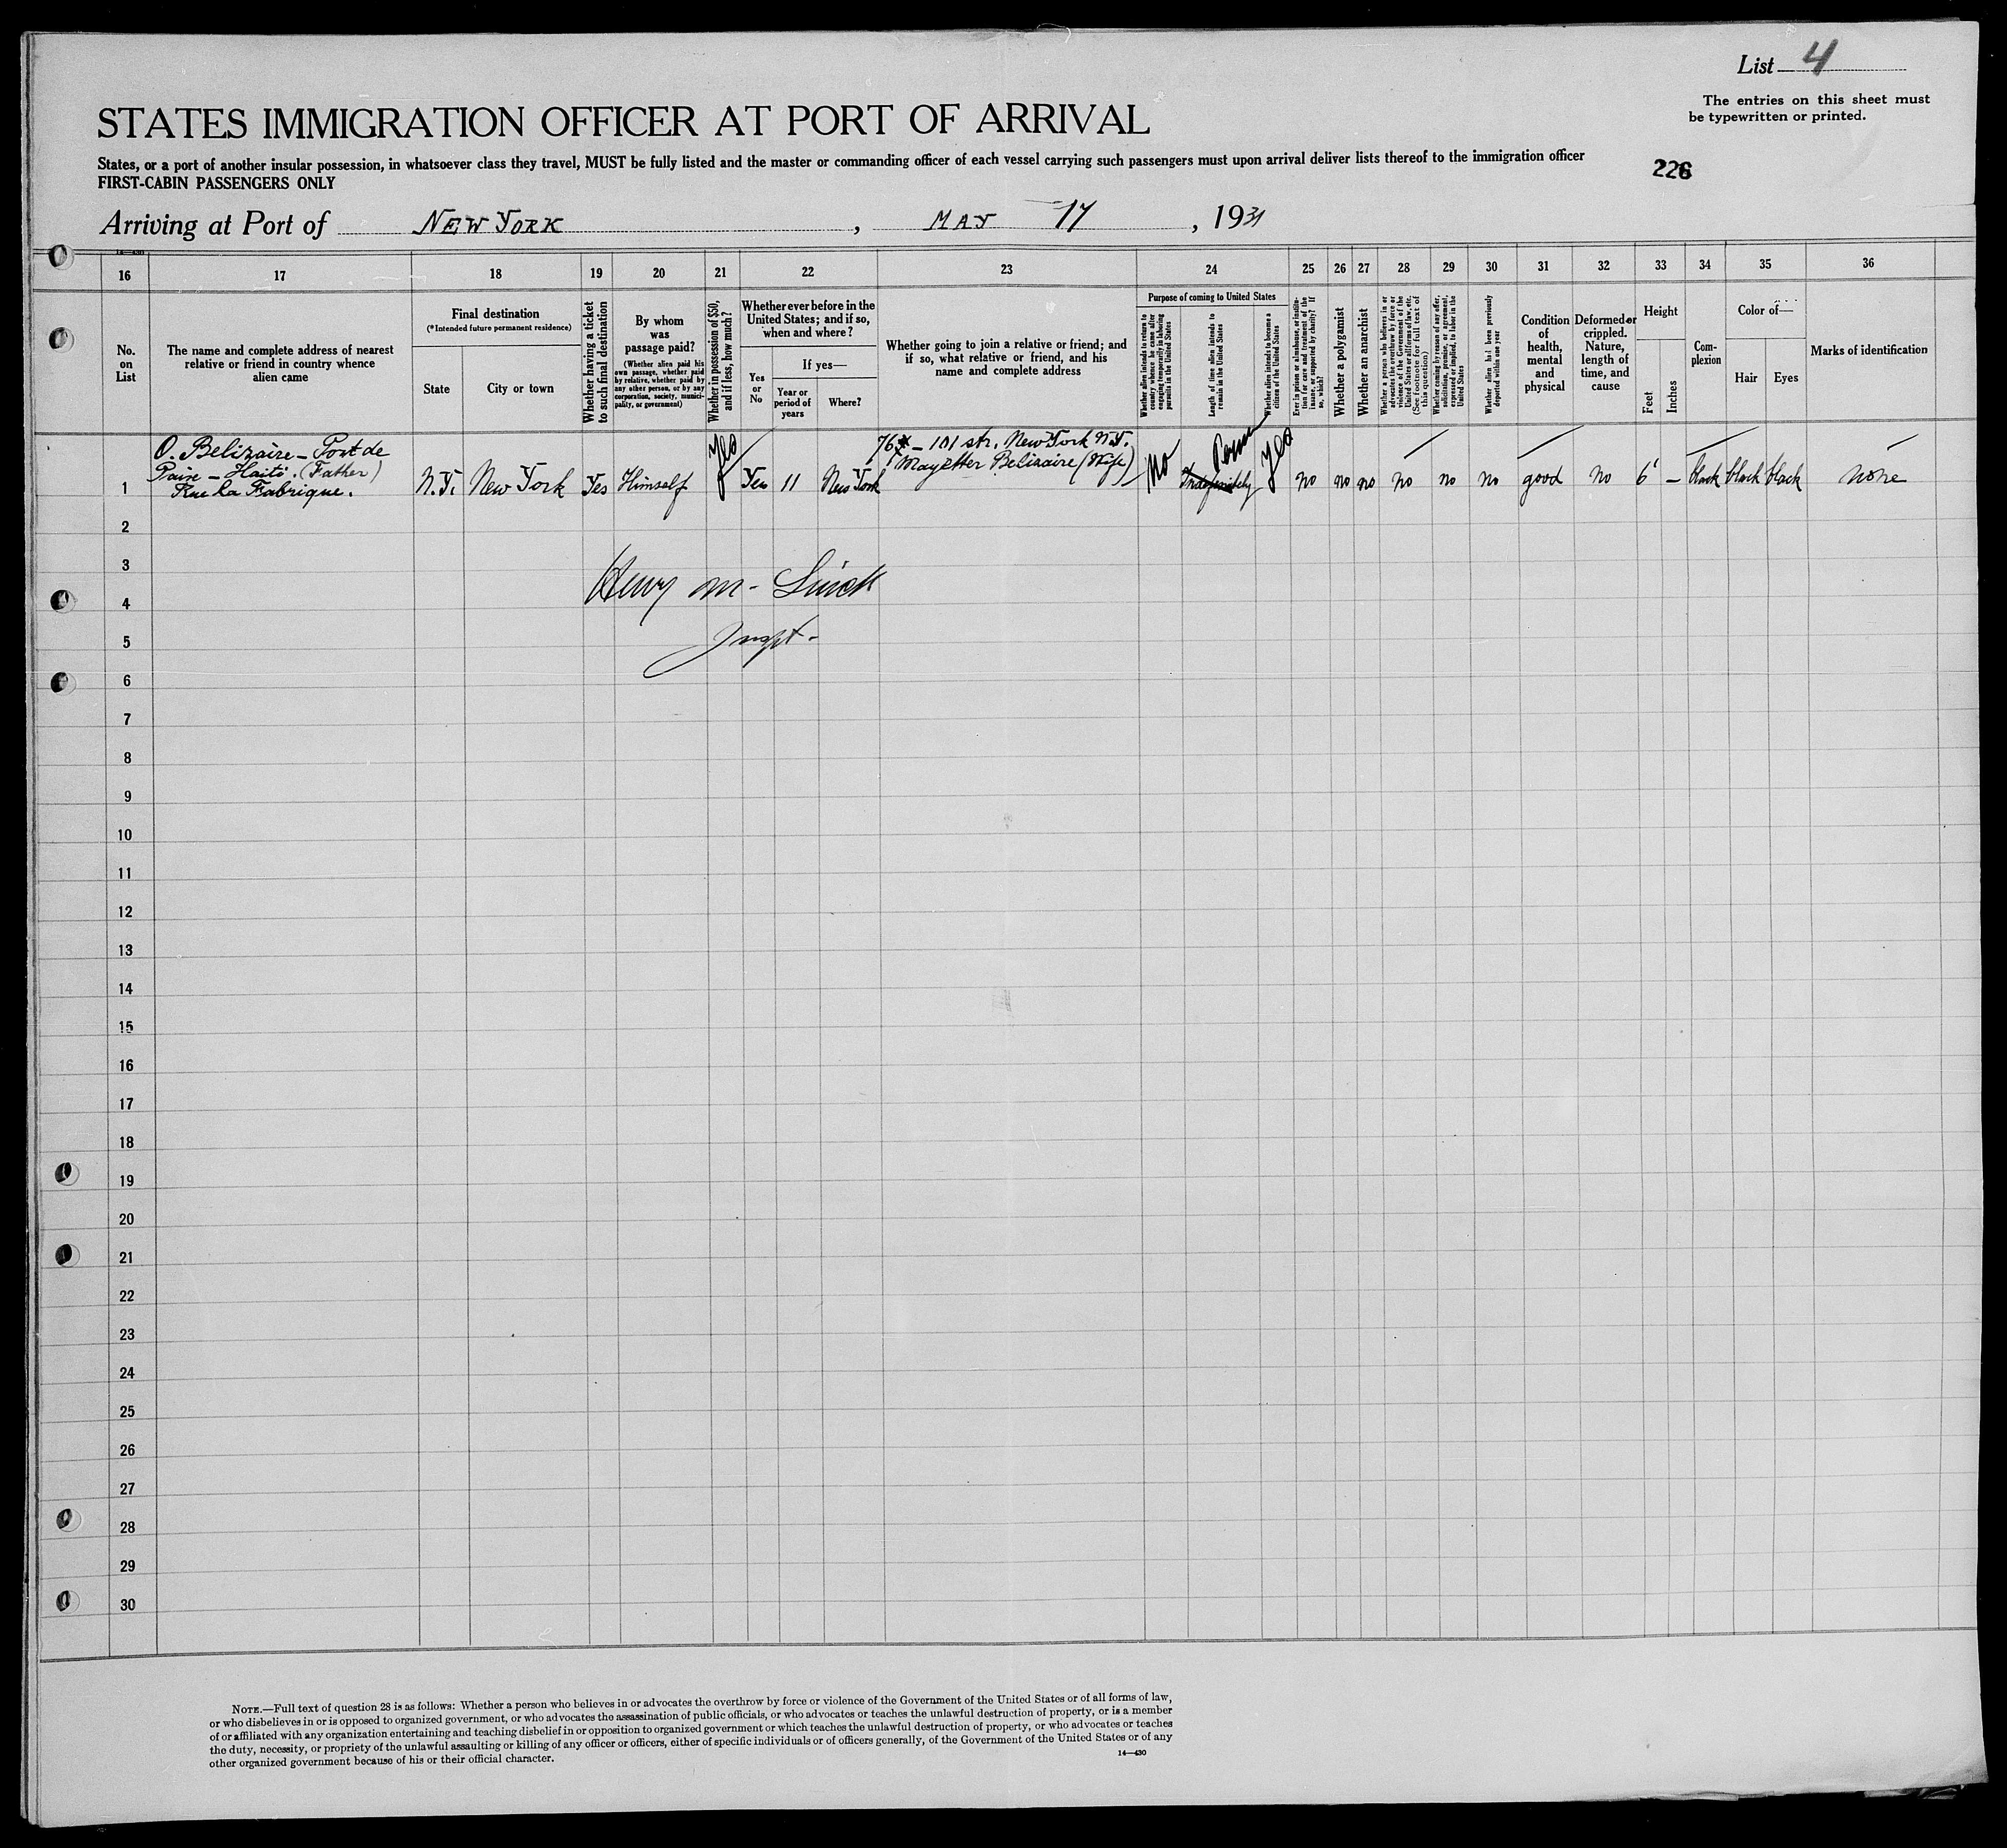 List 4
The entries on this sheet must
be typewritten or printed.
STATES IMMIGRATION OFFICER AT PORT OF ARRIVAL
States, or a port of another insular possession, in whatsoever class they travel, MUST be fully listed and the master or commanding officer of each vessel carrying such passengers must upon arrival deliver lists thereof to the immigration officer
FIRST-CABIN PASSENGERS ONLY
226
Arriving at Port of NEW YORK, MAY 17, 1931
16 17 18 19 20 21 22 23 24 25 26 27 28 29 30 31 32 33 34 35 36
No.
on
List
The name and complete address of nearest
relative or friend in country whence
alien came
Final destination
(*Intended future permanent residence)
State
City or town
Whether having a ticket
to such final destination
By whom
was
passage paid?
(Whether alien paid his
own passage, whether paid
by relative, whether paid by
any other person, or by any
corporation, society, munici-
pality, or government)
Whether in possession of $50,
and if less, how much?
Whether ever before in the
United States; and if so,
when and where?
Yes
or
No
If yes—
Year or
period of
years
Where?
Whether going to join a relative or friend; and
if so, what relative or friend, and his
name and complete address
Purpose of coming to United States
Whether alien intends to return to
country whence he came after
engaging temporarily in laboring
pursuits in the United States
Length of time alien intends to
remain in the United States
Whether alien intends to become a
citizen of the United States
Ever in prison or almshouse, or institu-
tion for care and treatment of the
insane, or supported by charity? If
so, which?
Whether a polygamist
Whether an anarchist
Whether a person who believes in or
advocates the overthrow by force or
violence of the Government of the
United States or all forms of law, etc.
(See footnote for full text of
this question)
Whether coming by reason of any offer,
solicitation, promise, or agreement,
expressed or implied, to labor in the
United States
Whether alien had been previously
deported within one year
Condition
of
health,
mental
and
physical
Deformed or
crippled.
Nature,
length of
time, and
cause
Height
Feet
Inches
Com-
plexion
Color of—
Hair
Eyes
Marks of identification
O. Belizaire - Port de
Paix - Haiti. (Father)
Rue la Fabrique.
1 N.Y. New York Yes Himself Yes Yes 11 New York
76 - 101 str. New York N.Y.
Mayetter Belizaire (Wife)
No Indefinitely Perm Yes no no no no no no good no 6' - black black black none
2
3
Henry M. Linck
4
Inspt.
5
6
7
8
9
10
11
12
13
14
15
16
17
18
19
20
21
22
23
24
25
26
27
28
29
30
NOTE.—Full text of question 28 is as follows: Whether a person who believes in or advocates the overthrow by force or violence of the Government of the United States or of all forms of law,
or who disbelieves in or is opposed to organized government, or who advocates the assassination of public officials, or who advocates or teaches the unlawful destruction of property, or is a member
of or affiliated with any organization entertaining and teaching disbelief in or opposition to organized government or which teaches the unlawful destruction of property, or who advocates or teaches
the duty, necessity, or propriety of the unlawful assaulting or killing of any officer or officers, either of specific individuals or of officers generally, of the Government of the United States or of any
other organized government because of his or their official character.
14—430